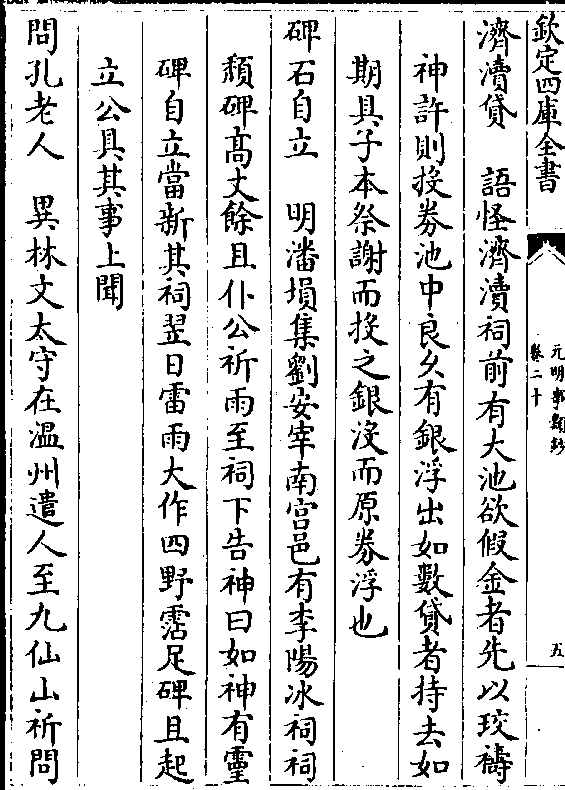 欽定四庫全書
元明事類鈔
卷二十
五
濟瀆貸　語怪濟瀆祠前有大池欲假金者先以珓禱
神許則投券池中良久有銀浮出如數貸者持去如
期具子本祭謝而投之銀沒而原券浮也
碑石自立　明潘塤集劉安宰南宫邑有李陽冰祠祠
頽碑高丈餘且仆公祈雨至祠下告神曰如神有靈
碑自立當新其祠翌日雷雨大作四野霑足碑且起
立公具其事上聞
問孔老人　異林文太守在溫州遣人至九仙山祈問